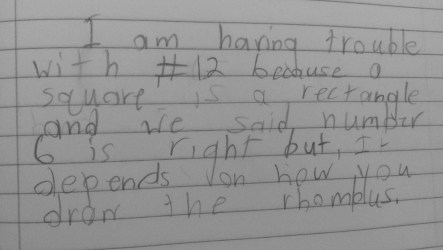 I am having trouble
with #12 because a
square is a rectangle
and we said number
6 is right but, It
depends on how you
draw the rhombus.